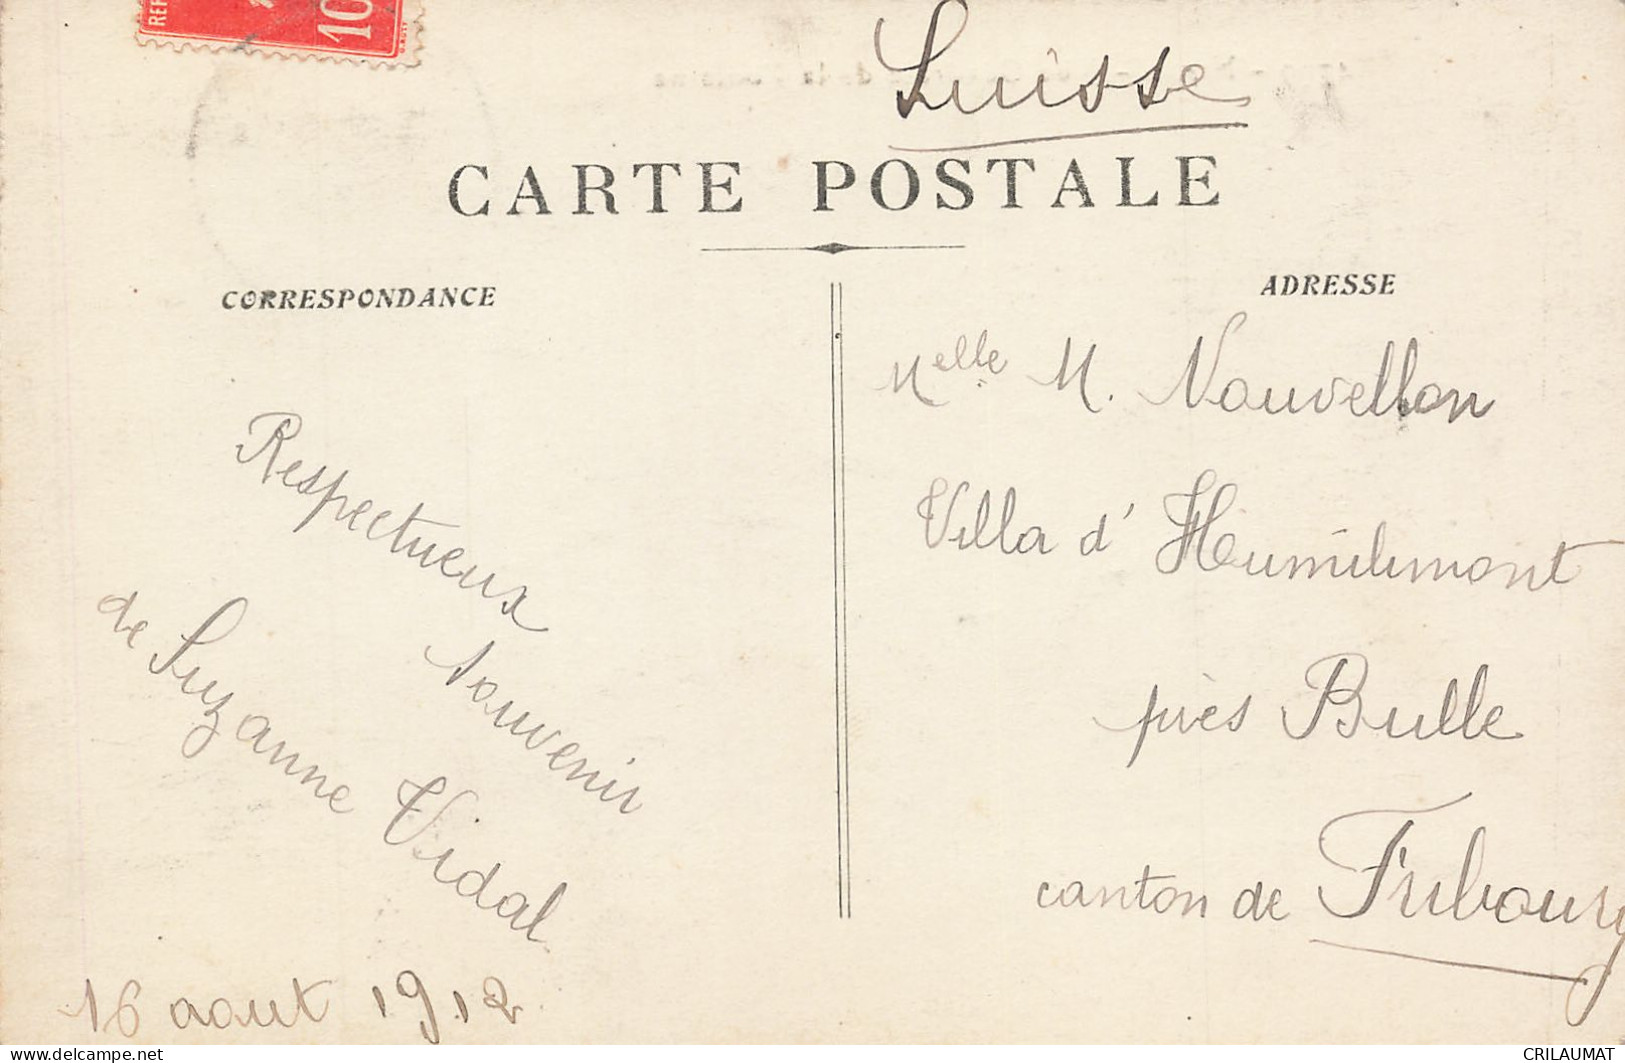 REP
10
Suisse
CARTE POSTALE
CORRESPONDANCE
ADRESSE
Respectueux
souvenir
de Suzanne Vidal
16 aout 1912
Melle M. Nouvellon
Villa d'Humilimont
près Bulle
canton de Fribourg
www.delcampe.net
CRILAUMAT